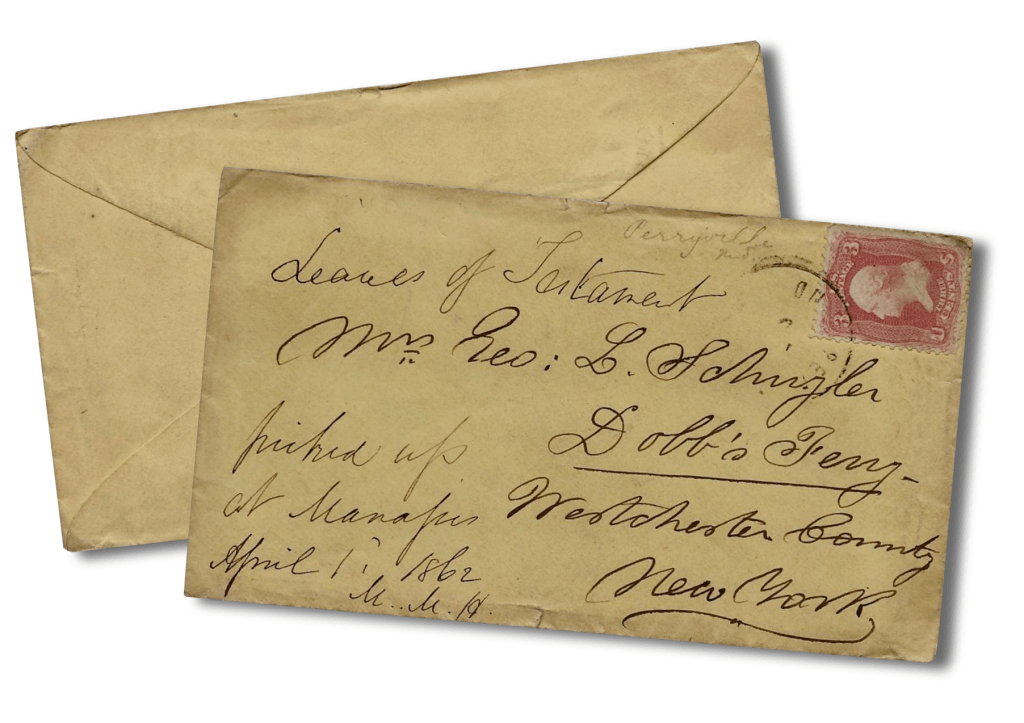 Perryville
Md
Leaves of Testament
Mrs Geo: L. Schuyler
Dobb's Ferry-
Westchester County
New York
picked up
at Manassas
April 1st 1862
M. M. H.
MD
3 3
U S